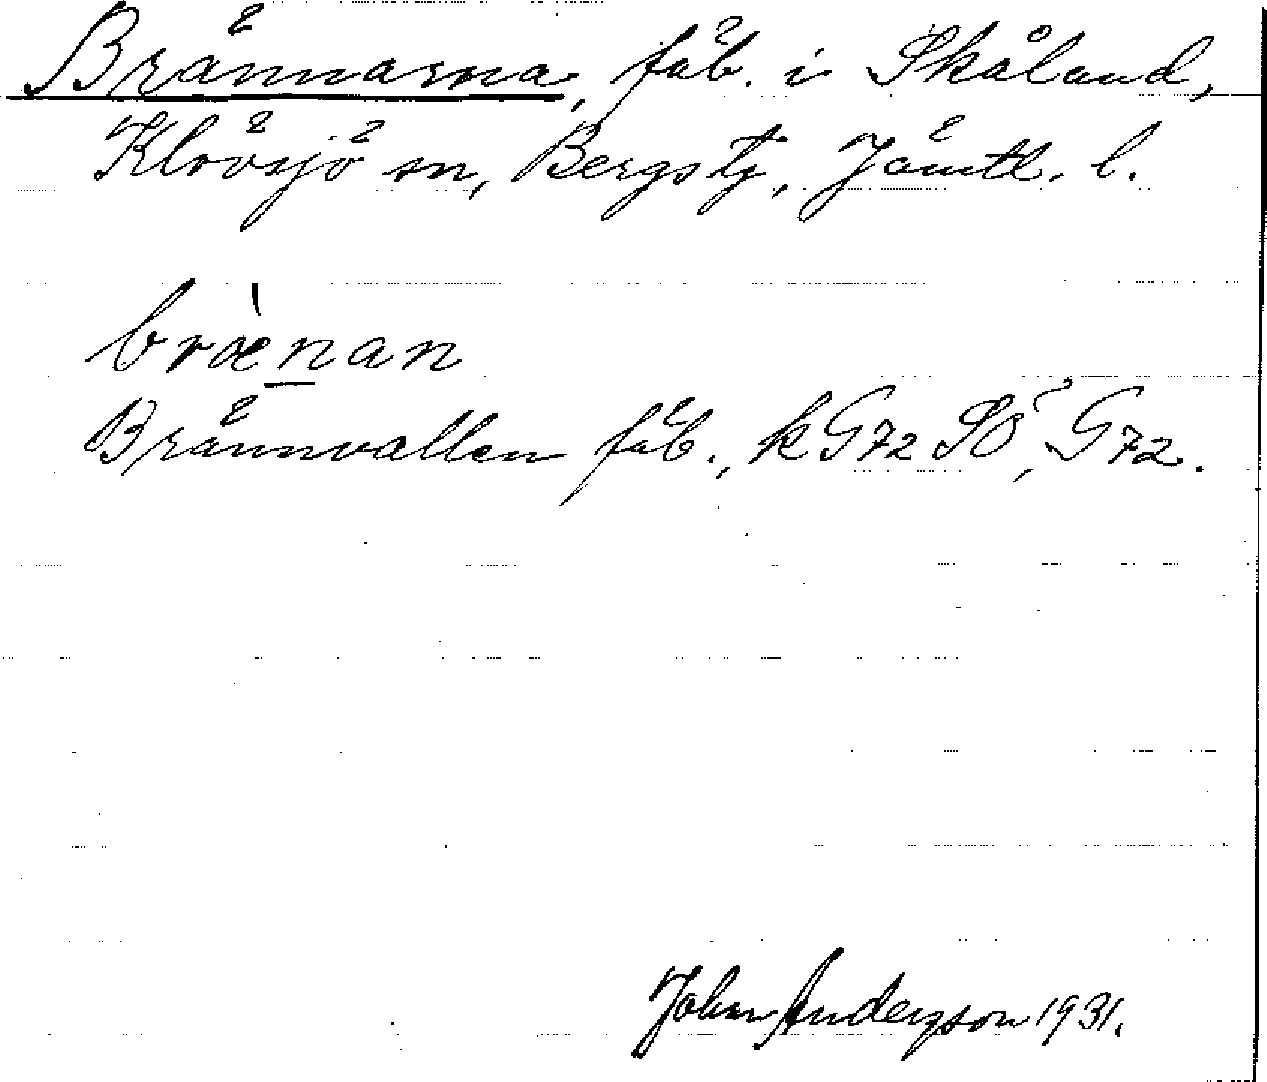 Brännarna, fäb. i Skålund,
Klövsjö sn, Bergs tg, Jämtl. l.
bræ̀n̲an
Brännvallen fäb., k G72 SÖ, G72.
Johan Andersson 1931.